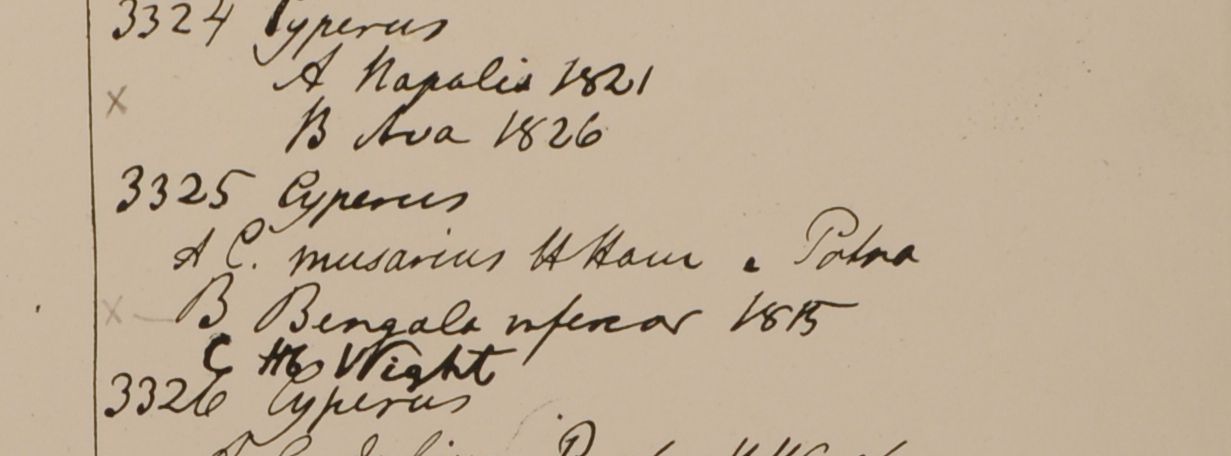 3324 Cyperus
A Napalis 1821
x
B Ava 1826
3325 Cyperus
A C. musarius H Ham e Patna
x B Bengala inferior 1815
C Hb Wight
3326 Cyperus